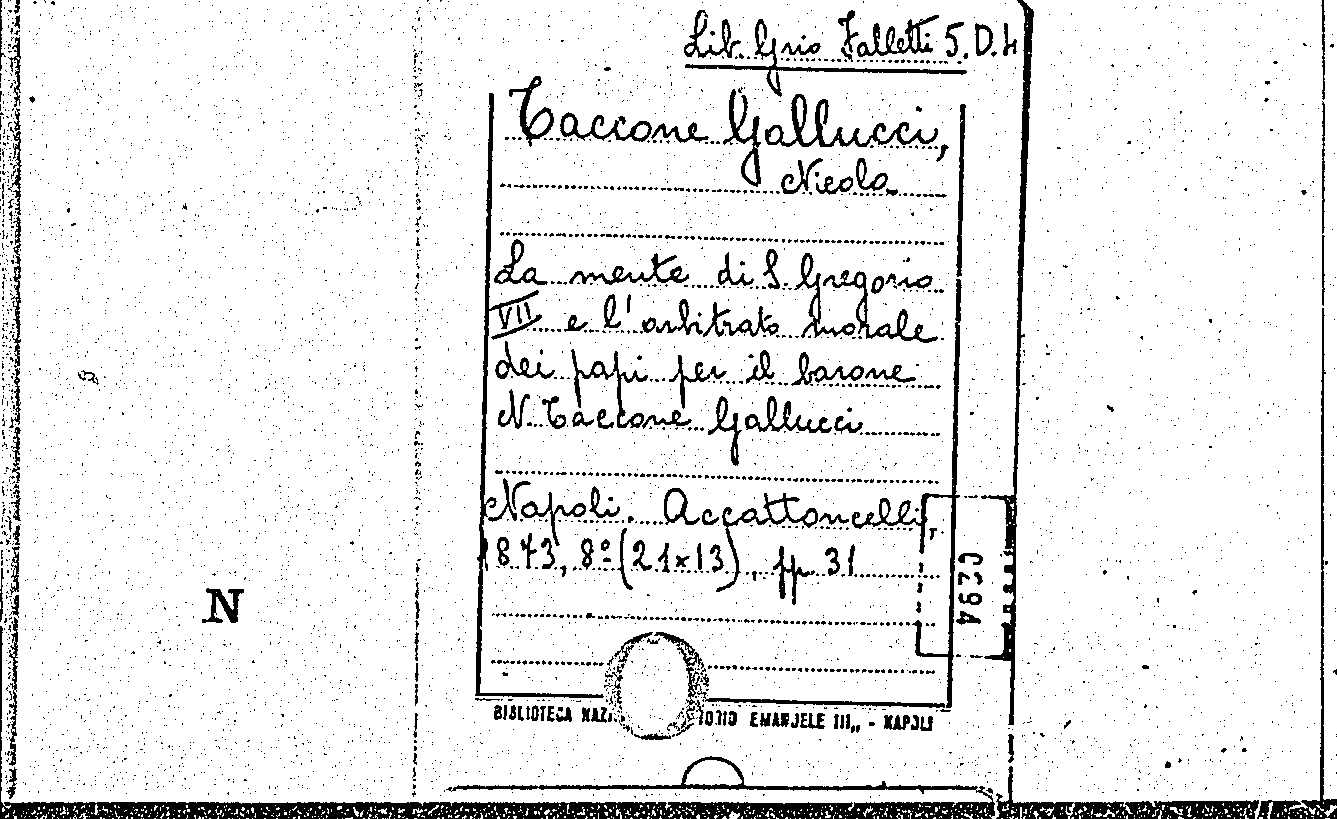 Lib. Grio Falletti 5.D.4
Taccone Gallucci,
Nicola
La mente di S. Gregorio
VII e l'arbitrato morale
dei papi per il barone
N. Taccone Gallucci
Napoli. Accattoncelli,
1873, 8º (21x13), pp 31
N
BIBLIOTECA EMANUELE III,, - NAPOLI